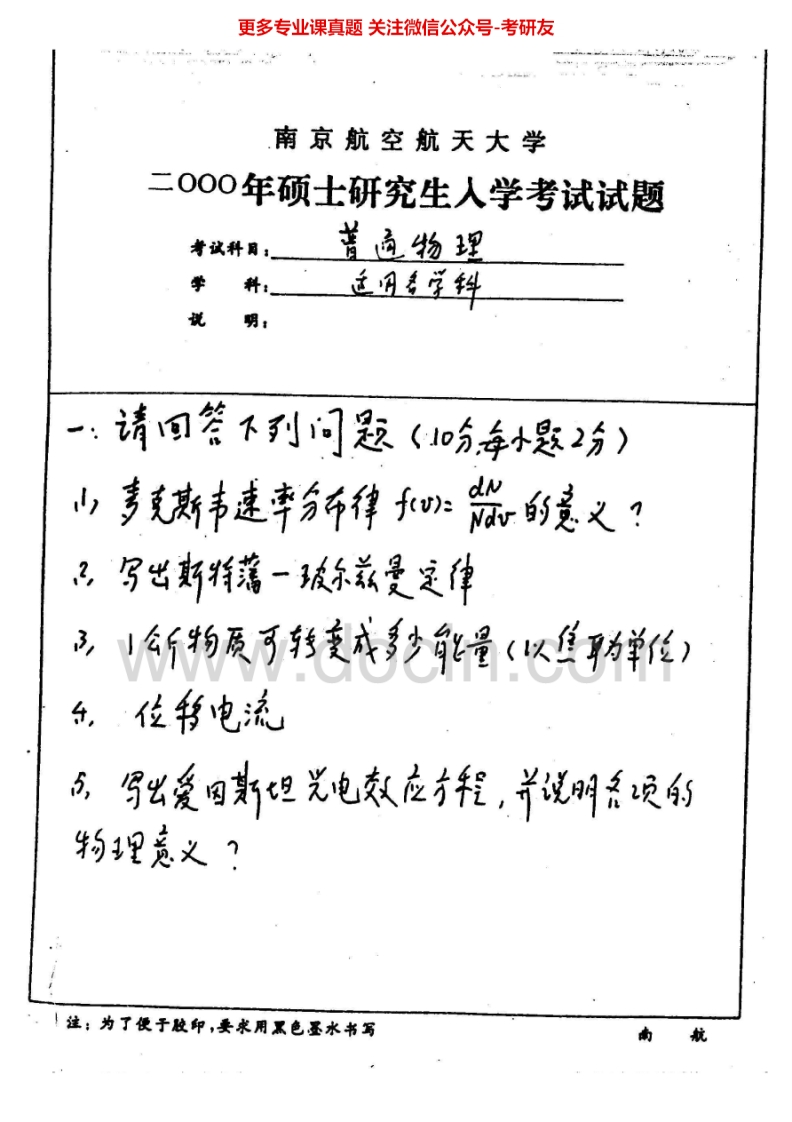 更多专业课真题 关注微信公众号-考研友
南京航空航天大学
二〇〇〇年硕士研究生入学考试试题
考试科目: 普通物理
学 科: 适用各学科
说 明:
一: 请回答下列问题 (10分,每小题2分)
1) 麦克斯韦速率分布律 f(v)= dN/Ndv 的意义?
2, 写出斯特藩一玻尔兹曼定律
3, 1公斤物质可转变成多少能量 (以焦耳为单位)
4, 位移电流
5, 写出爱因斯坦光电效应方程, 并说明各项的
物理意义?
www.docin.com
注: 为了便于胶印,要求用黑色墨水书写
南 航